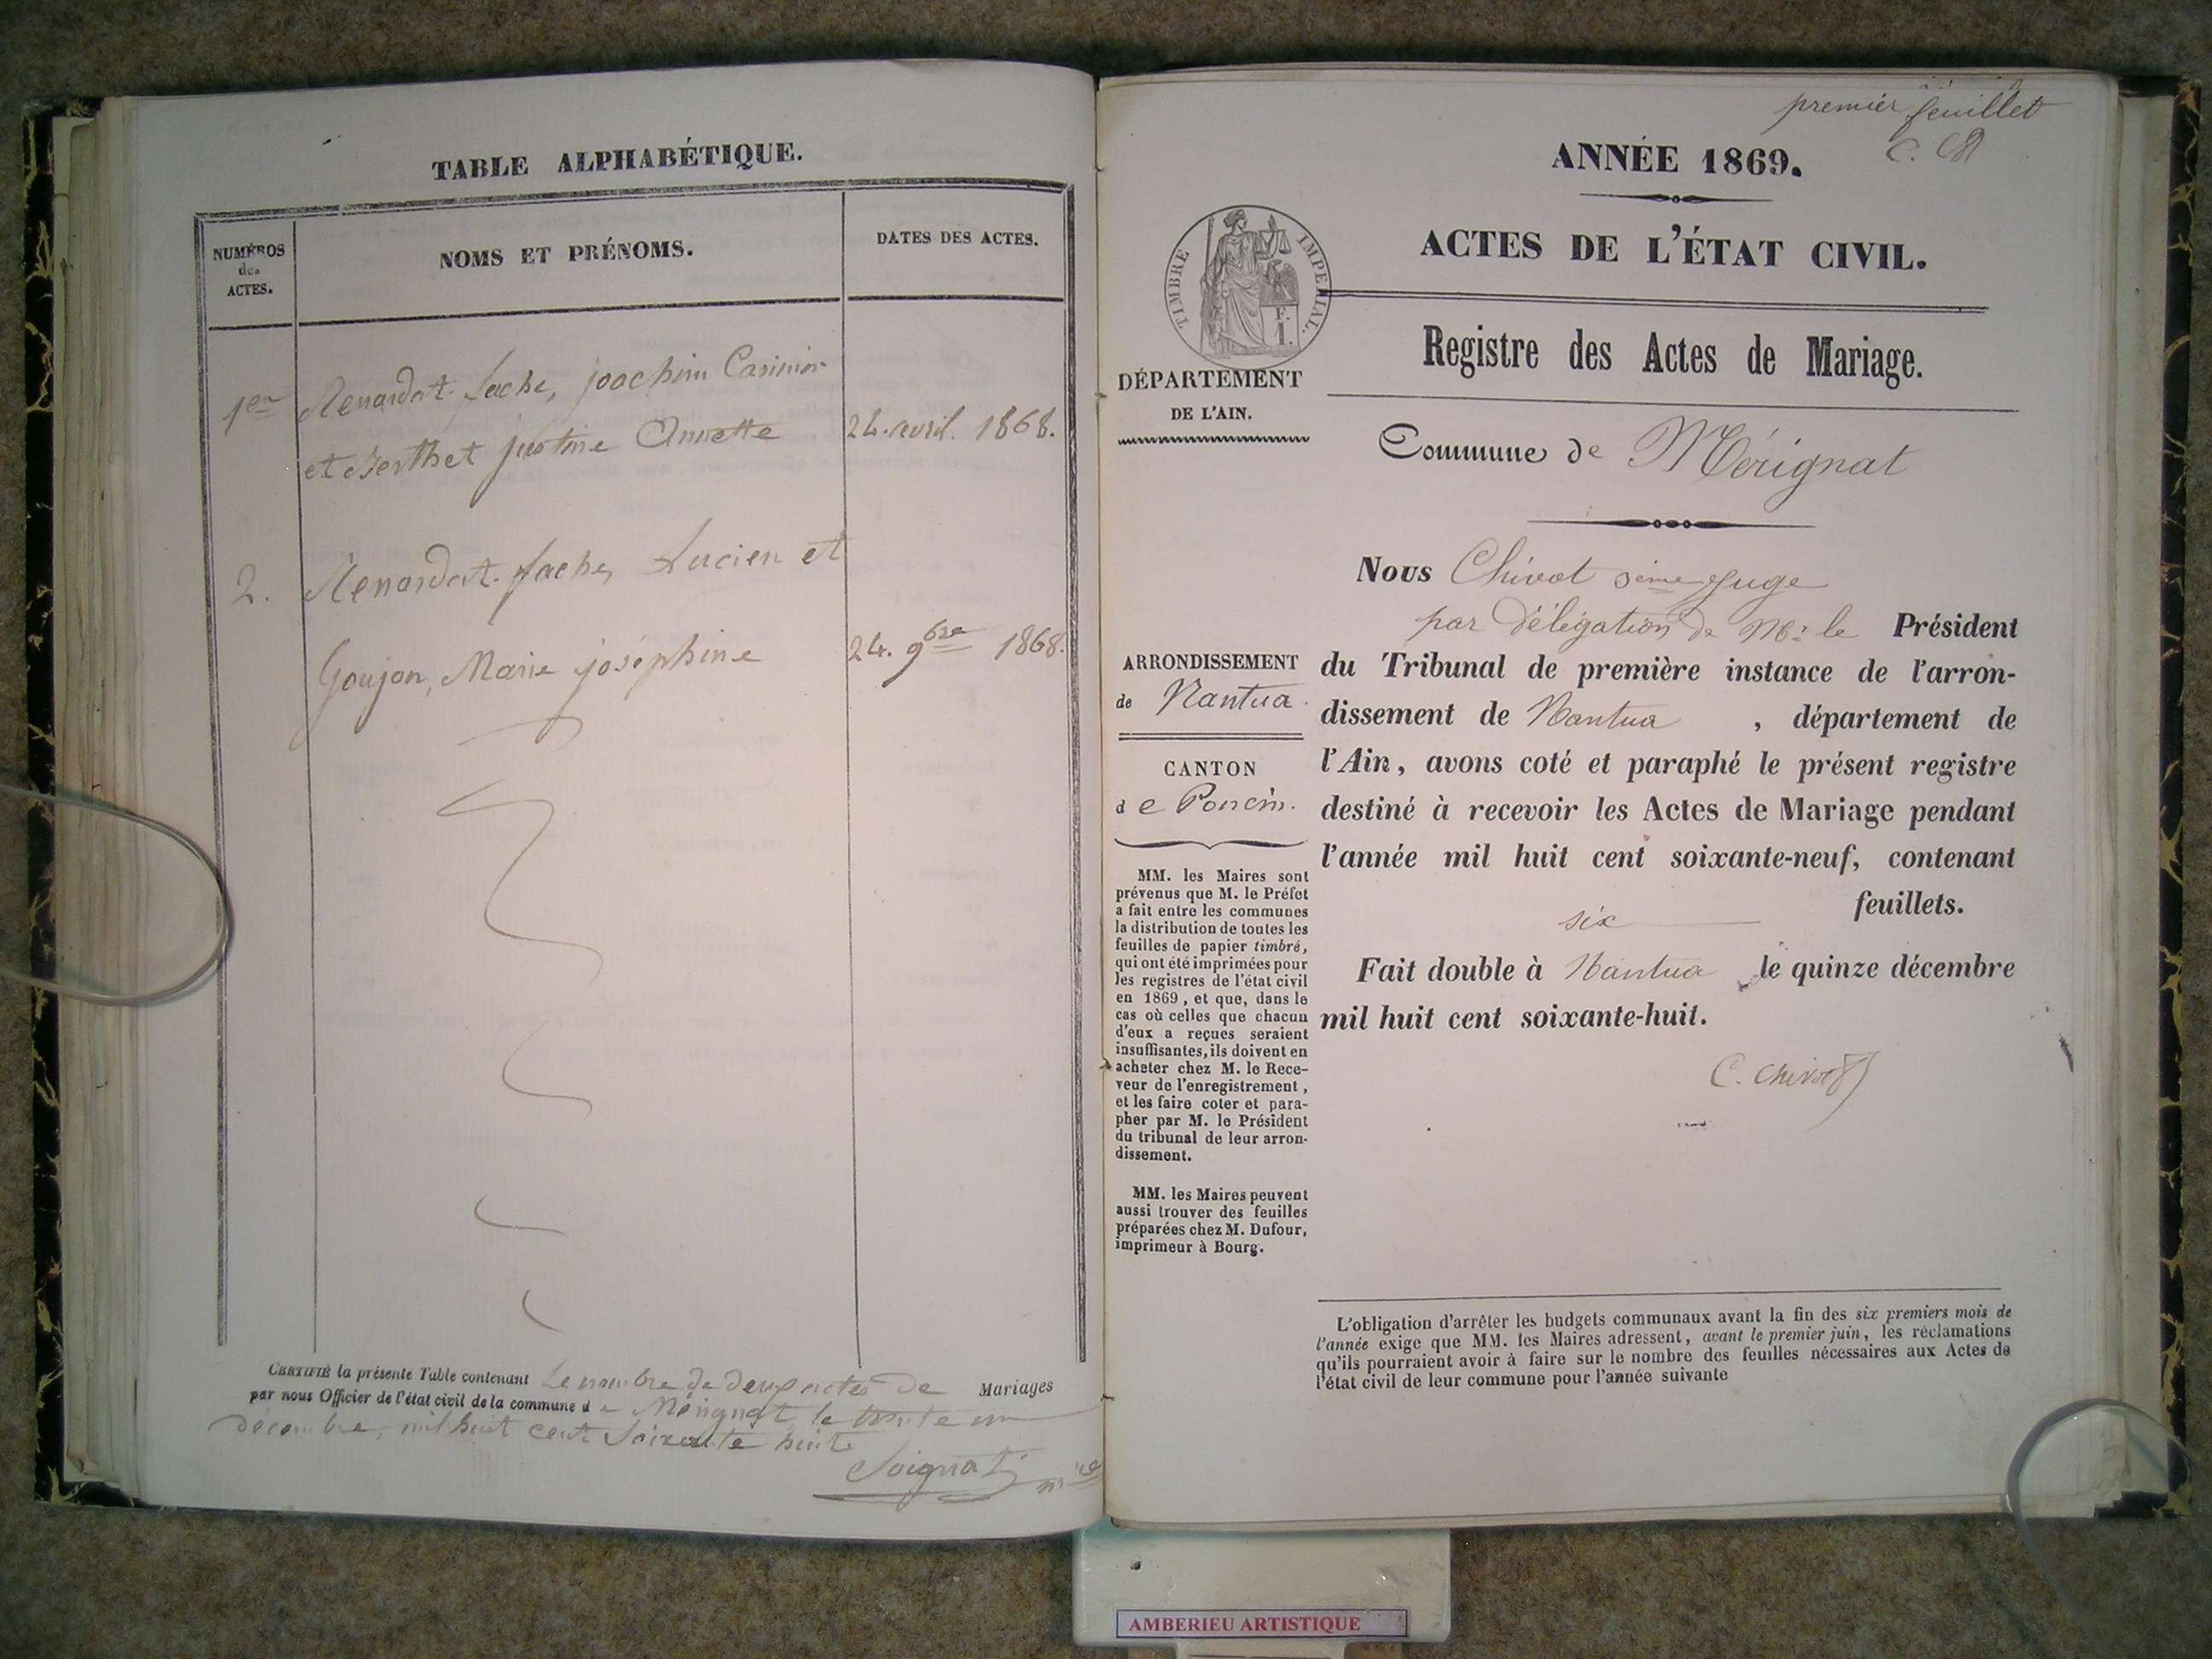 TABLE ALPHABÉTIQUE.
NUMÉROS
des
ACTES.
NOMS ET PRÉNOMS.
DATES DES ACTES.
1er Renardat-fache, joachim Casimir
et Berthet justine Annette 24. avril. 1868.
2. Renardat-fache, Lucien et
Goujon, Marie joséphine 24. 9bre 1868.
CERTIFIÉ la présente Table contenant Le nombre de deux actes de Mariages
par nous Officier de l'état civil de la commune de Mérignat le trente un
décembre, mil huit cent soixante huit
Soignat
premier feuillet
ANNÉE 1869.
ACTES DE L'ÉTAT CIVIL.
TIMBRE IMPÉRIAL.
F.
1.
Registre des Actes de Mariage.
DÉPARTEMENT
DE L'AIN.
Commune de Mérignat
Nous Chivot 3ème Juge
par délégation de Mr le Président
du Tribunal de première instance de l'arron-
dissement de Nantua , département de
l'Ain, avons coté et paraphé le présent registre
destiné à recevoir les Actes de Mariage pendant
l'année mil huit cent soixante-neuf, contenant
six feuillets.
Fait double à Nantua le quinze décembre
mil huit cent soixante-huit.
C. Chivot
ARRONDISSEMENT
de Nantua
CANTON
de Poncin.
MM. les Maires sont
prévenus que M. le Préfet
a fait entre les communes
la distribution de toutes les
feuilles de papier timbré,
qui ont été imprimées pour
les registres de l'état civil
en 1869, et que, dans le
cas où celles que chacun
d'eux a reçues seraient
insuffisantes, ils doivent en
acheter chez M. le Rece-
veur de l'enregistrement,
et les faire coter et para-
pher par M. le Président
du tribunal de leur arron-
dissement.
MM. les Maires peuvent
aussi trouver des feuilles
préparées chez M. Dufour,
imprimeur à Bourg.
L'obligation d'arrêter les budgets communaux avant la fin des six premiers mois de
l'année exige que MM. les Maires adressent, avant le premier juin, les réclamations
qu'ils pourraient avoir à faire sur le nombre des feuilles nécessaires aux Actes de
l'état civil de leur commune pour l'année suivante
AMBERIEU ARTISTIQUE